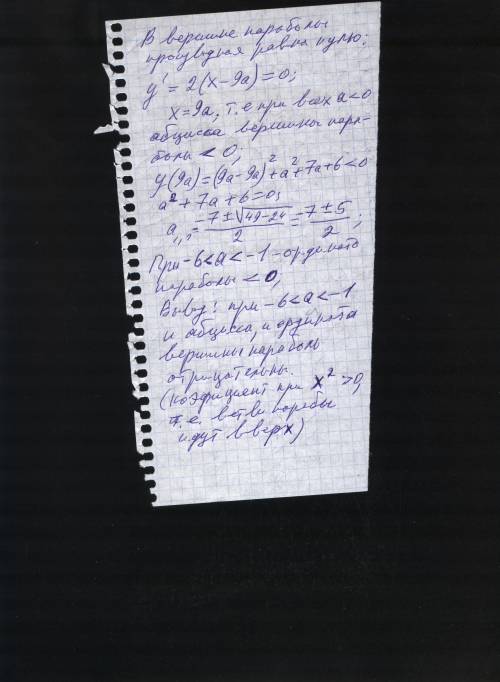 В вершине параболы
производная равна нулю:
y' = 2(x-9a) = 0;
x = 9a, т.е при всех a<0
абцисса вершины пара-
болы < 0;
y(9a) = (9a-9a)² + a² + 7a + 6 < 0
a² + 7a + 6 = 0;
a₁,₂ = (-7 ± √(49-24))/2 = (-7 ± 5)/2;
При -6<a<-1 - ордината
параболы < 0;
Вывод: при -6<a<-1
и абцисса, и ордината
вершины парабол
отрицательны.
(коэфициент при x² >0,
т.е. ветви парабы
идут вверх)